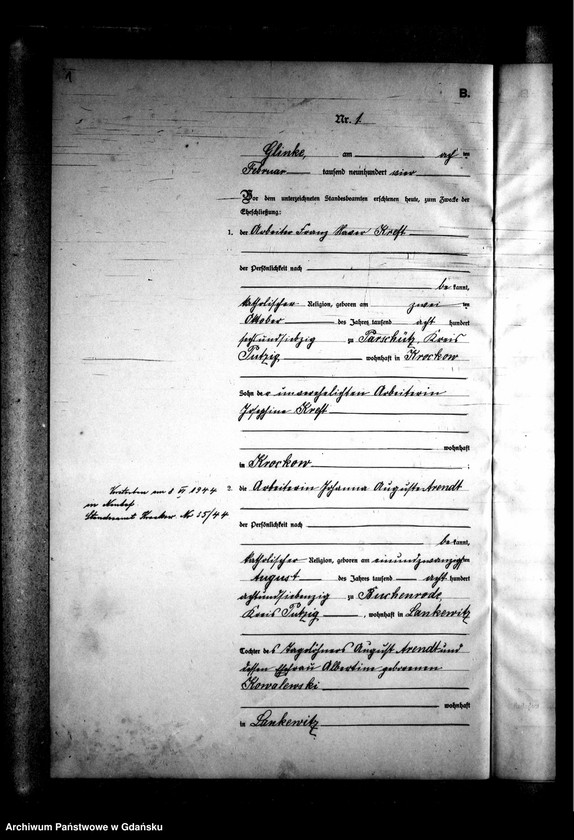 1
B.
Nr. 1.
Glinke, am acht ten
Februar tausend neunhundert vier
Vor dem unterzeichneten Standesbeamten erschienen heute, zum Zwecke der
Eheschließung:
1. der Arbeiter Franz Xaver Kreft
der Persönlichkeit nach
be kannt,
katholischer Religion, geboren am zwei ten
Oktober des Jahres tausend acht hundert
sechsundsiebzig zu Parschütz, Kreis
Putzig, wohnhaft in Krockow
Sohn der unverehelichten Arbeiterin
Josephine Kreft
wohnhaft
in Krockow
2. die Arbeiterin Johanna Auguste Arendt
der Persönlichkeit nach
be kannt,
katholischer Religion, geboren am einundzwanzigsten
August des Jahres tausend acht hundert
achtundsiebenzig zu Buchenrode,
Kreis Putzig, wohnhaft in Lankewitz
Tochter des Tagelöhners August Arendt und
dessen Ehefrau Albertine geborenen
Kowalewski
wohnhaft
in Lankewitz
Verstorben am 8 VI 1944
in
Standesamt Krockow Nr 25/44
Archiwum Państwowe w Gdańsku